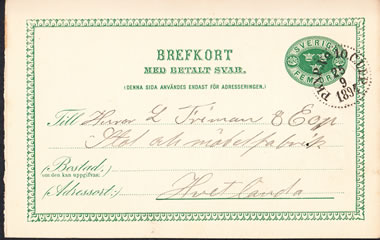 BREFKORT
MED BETALT SVAR.
(DENNA SIDA ANVÄNDES ENDAST FÖR ADRESSERINGEN.)
SVERIGE
FEM ÖRE
25
9
Till Herrar L Friman & Co
Stol och möbelfabrik
(Bostad:)
(om den kan uppgifvas)
(Adressort:) Hvetlanda